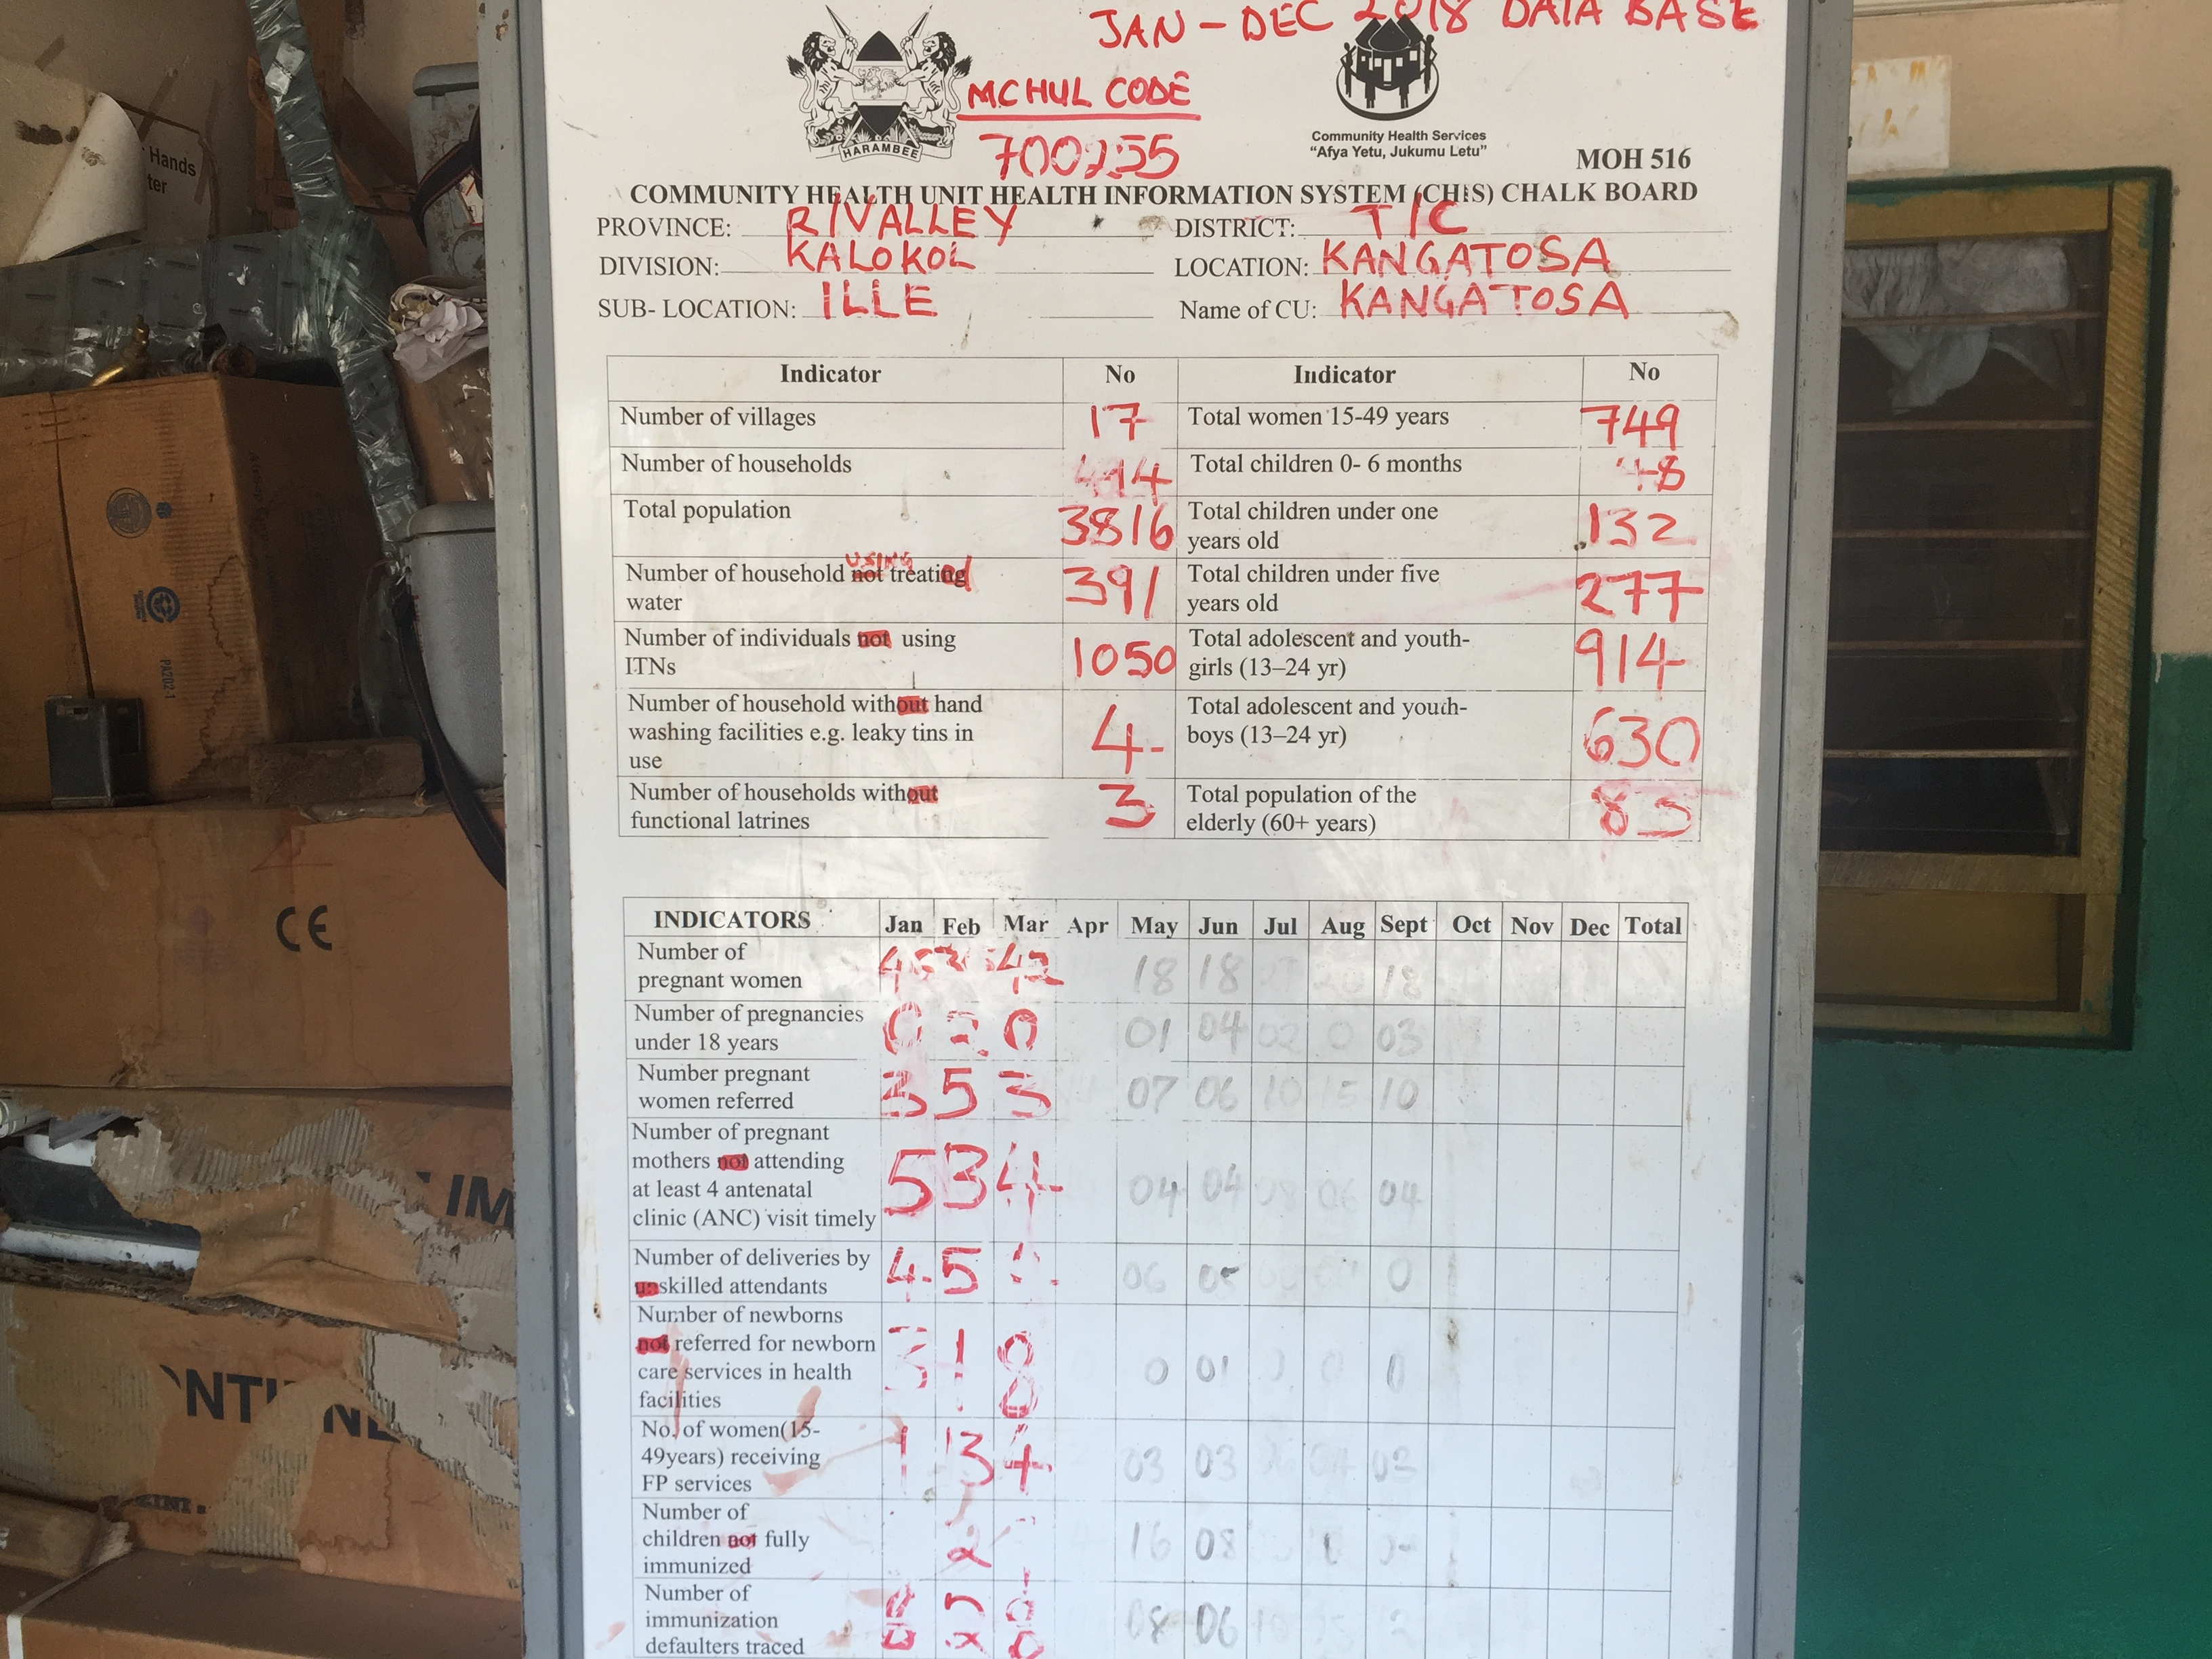 JAN - DEC 2018 DATA BASE
MCHUL CODE
700255
HARAMBEE
Community Health Services
"Afya Yetu, Jukumu Letu"
MOH 516
COMMUNITY HEALTH UNIT HEALTH INFORMATION SYSTEM (CHIS) CHALK BOARD
PROVINCE: R/VALLEY DISTRICT: T/C
DIVISION: KALOKOL LOCATION: KANGATOSA
SUB- LOCATION: ILLE Name of CU: KANGATOSA
Indicator No Indicator No
Number of villages 17 Total women 15-49 years 749
Number of households Total children 0- 6 months 48
Total population 3816 Total children under one
years old 132
USING
Number of household not treated
water 391 Total children under five
years old 277
Number of individuals not using
ITNs 1050 Total adolescent and youth-
girls (13–24 yr) 914
Number of household without hand
washing facilities e.g. leaky tins in
use 4 Total adolescent and youth-
boys (13–24 yr) 630
Number of households without
functional latrines 3 Total population of the
elderly (60+ years)
INDICATORS Jan Feb Mar Apr May Jun Jul Aug Sept Oct Nov Dec Total
Number of
pregnant women 42 18 18 18
Number of pregnancies
under 18 years 0 2 0 01 04 02 0 03
Number pregnant
women referred 3 5 3 07 06 10 15 10
Number of pregnant
mothers not attending
at least 4 antenatal
clinic (ANC) visit timely 5 3 4 04 04 08 06 04
Number of deliveries by
unskilled attendants 4 5 06 05 0
Number of newborns
not referred for newborn
care services in health
facilities 3 1 0 0 01 0 0
No. of women(15-
49years) receiving
FP services 1 13 4 03 03 03
Number of
children not fully
immunized 2 16 08
Number of
immunization
defaulters traced 08 06
Hands
ter
PA202-1
CE
IM